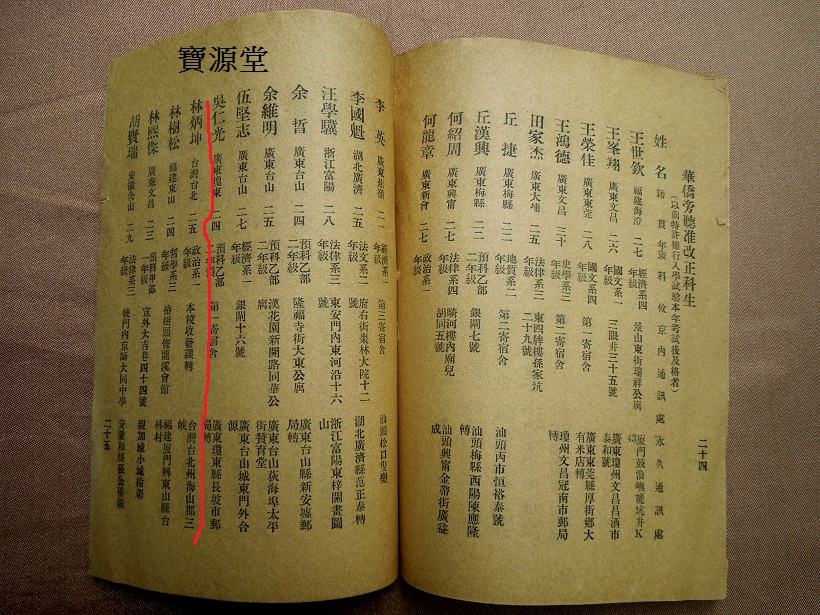 寶源堂
二十四
華僑旁聽准改正科生
(以前特許隨行入學試驗本年考試後及格者)
姓名 籍貫 年歲 科 攷 京內通訊處 永久通訊處
王世欽 福建海澄 二七 經濟系四年級 景山東街瑞祥公寓 廈門鼓浪嶼龍坑井K43
王峯翔 廣東文昌 二六 國文系一年級 三眼井三十五號 廣東瓊州文昌昌洒市泰和號
王榮佳 廣東東莞 二八 國文系四年級 第一寄宿舍 廣東東莞縣厚街鄉大有米店轉
王鴻德 廣東文昌 三十 史學系三年級 第二寄宿舍 瓊州文昌冠南市郵局
田家杰 廣東大埔 二五 法律系三年級 東四牌樓孫家坑二十九號
丘捷 廣東梅縣 二三 地質系二年級 第二寄宿舍 汕頭內市恒裕泰號
丘漢興 廣東梅縣 二二 預科乙部二年級 銀閘七號 汕頭梅縣西陽陳應隆轉
何紹周 廣東興甯 二七 法律系四年級 騎河樓內廟兒胡同五號 汕頭興甯金帶街廣益成
何龍章 廣東新會 二七 政治系一年級
李英 廣東 二一 經濟系一年級 第三寄宿舍 汕頭松口
李國魁 湖北廣濟 二五 法文系二年級 府右街棗林大院十二號 湖北廣濟縣范正泰轉
汪學驥 浙江富陽 二八 法律系三年級 東安門內東河沿十六號 浙江富陽東梓關畫圖山
余晢 廣東台山 二四 預科乙部二年級 隆福寺街大東公寓 廣東台山縣新安墟郵局轉
余維明 廣東台山 二五 預科乙部二年級 漢花園新開路同華公寓 廣東台山荻海埠太平街贊育堂
伍堅志 廣東台山 二七 經濟系一年級 銀閘十六號 廣東台山城東門外合源
吳仁光 廣東瓊東 二四 預科乙部二年級 第一寄宿舍 廣東瓊東縣長坡市郵局轉
林炳坤 台灣台北 二五 政治系一年級 本校收發課轉 台灣台北州海山郡三峽
林樹松 福建東山 二四 哲學系三年級 椿樹頭條龍溪會館 福建廈門轉東山縣台林村
林熙傑 廣東文昌 二三 預科甲部一年級 宣外大吉巷四十四號 親加城小城綸彰
胡賢瑞 安徽含山 二九 法律系三年級 後門內京師大同中學 安徽和縣張公橋鎮
二十五